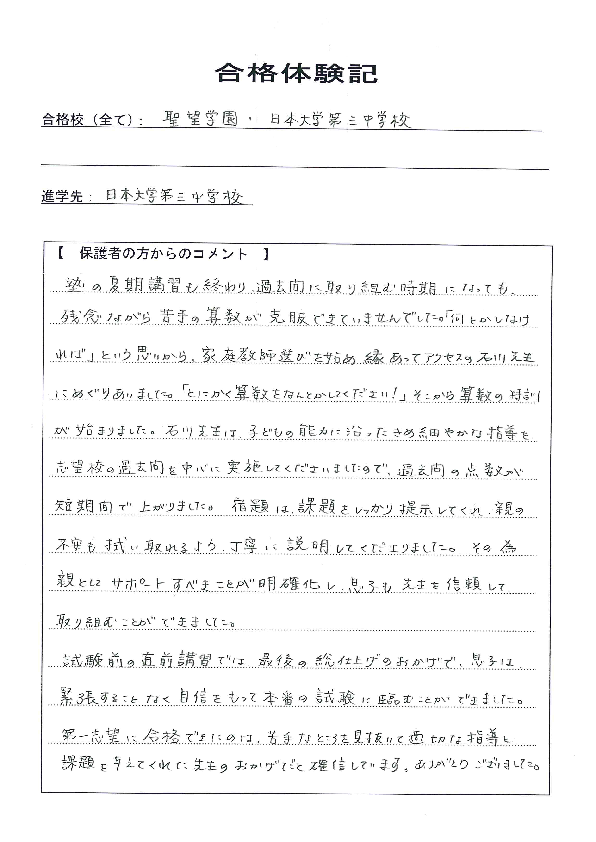 合格体験記
合格校（全て）： 聖望学園・日本大学第三中学校
進学先： 日本大学第三中学校
【 保護者の方からのコメント 】
塾の夏期講習も終わり、過去問に取り組む時期になっても、
残念ながら苦手の算数が克服できていませんでした。「何とかしなけ
れば」という思いから、家庭教師選びをはじめ縁あってアクセスの石川先生
にめぐりあいました。「とにかく算数をなんとかしてください！」そこから算数の特訓
が始まりました。石川先生は、子どもの能力に沿ったきめ細やかな指導を
志望校の過去問を中心に実施してくださいましたので、過去問の点数が
短期間で上がりました。 宿題は、課題をしっかり提示してくれ、親の
不安も拭い取れるよう、丁寧に説明してくださりました。その為
親としてサポートすべきことが明確化し、息子も先生を信頼して
取り組むことができました。
試験前の直前講習では、最後の総仕上げのおかげで、息子は
緊張することなく自信をもって本番の試験に臨むことができました。
第一志望に合格できたのは、苦手なところを見抜いて適切な指導と
課題を与えてくれた先生のおかげだと確信しています。ありがとうございました。